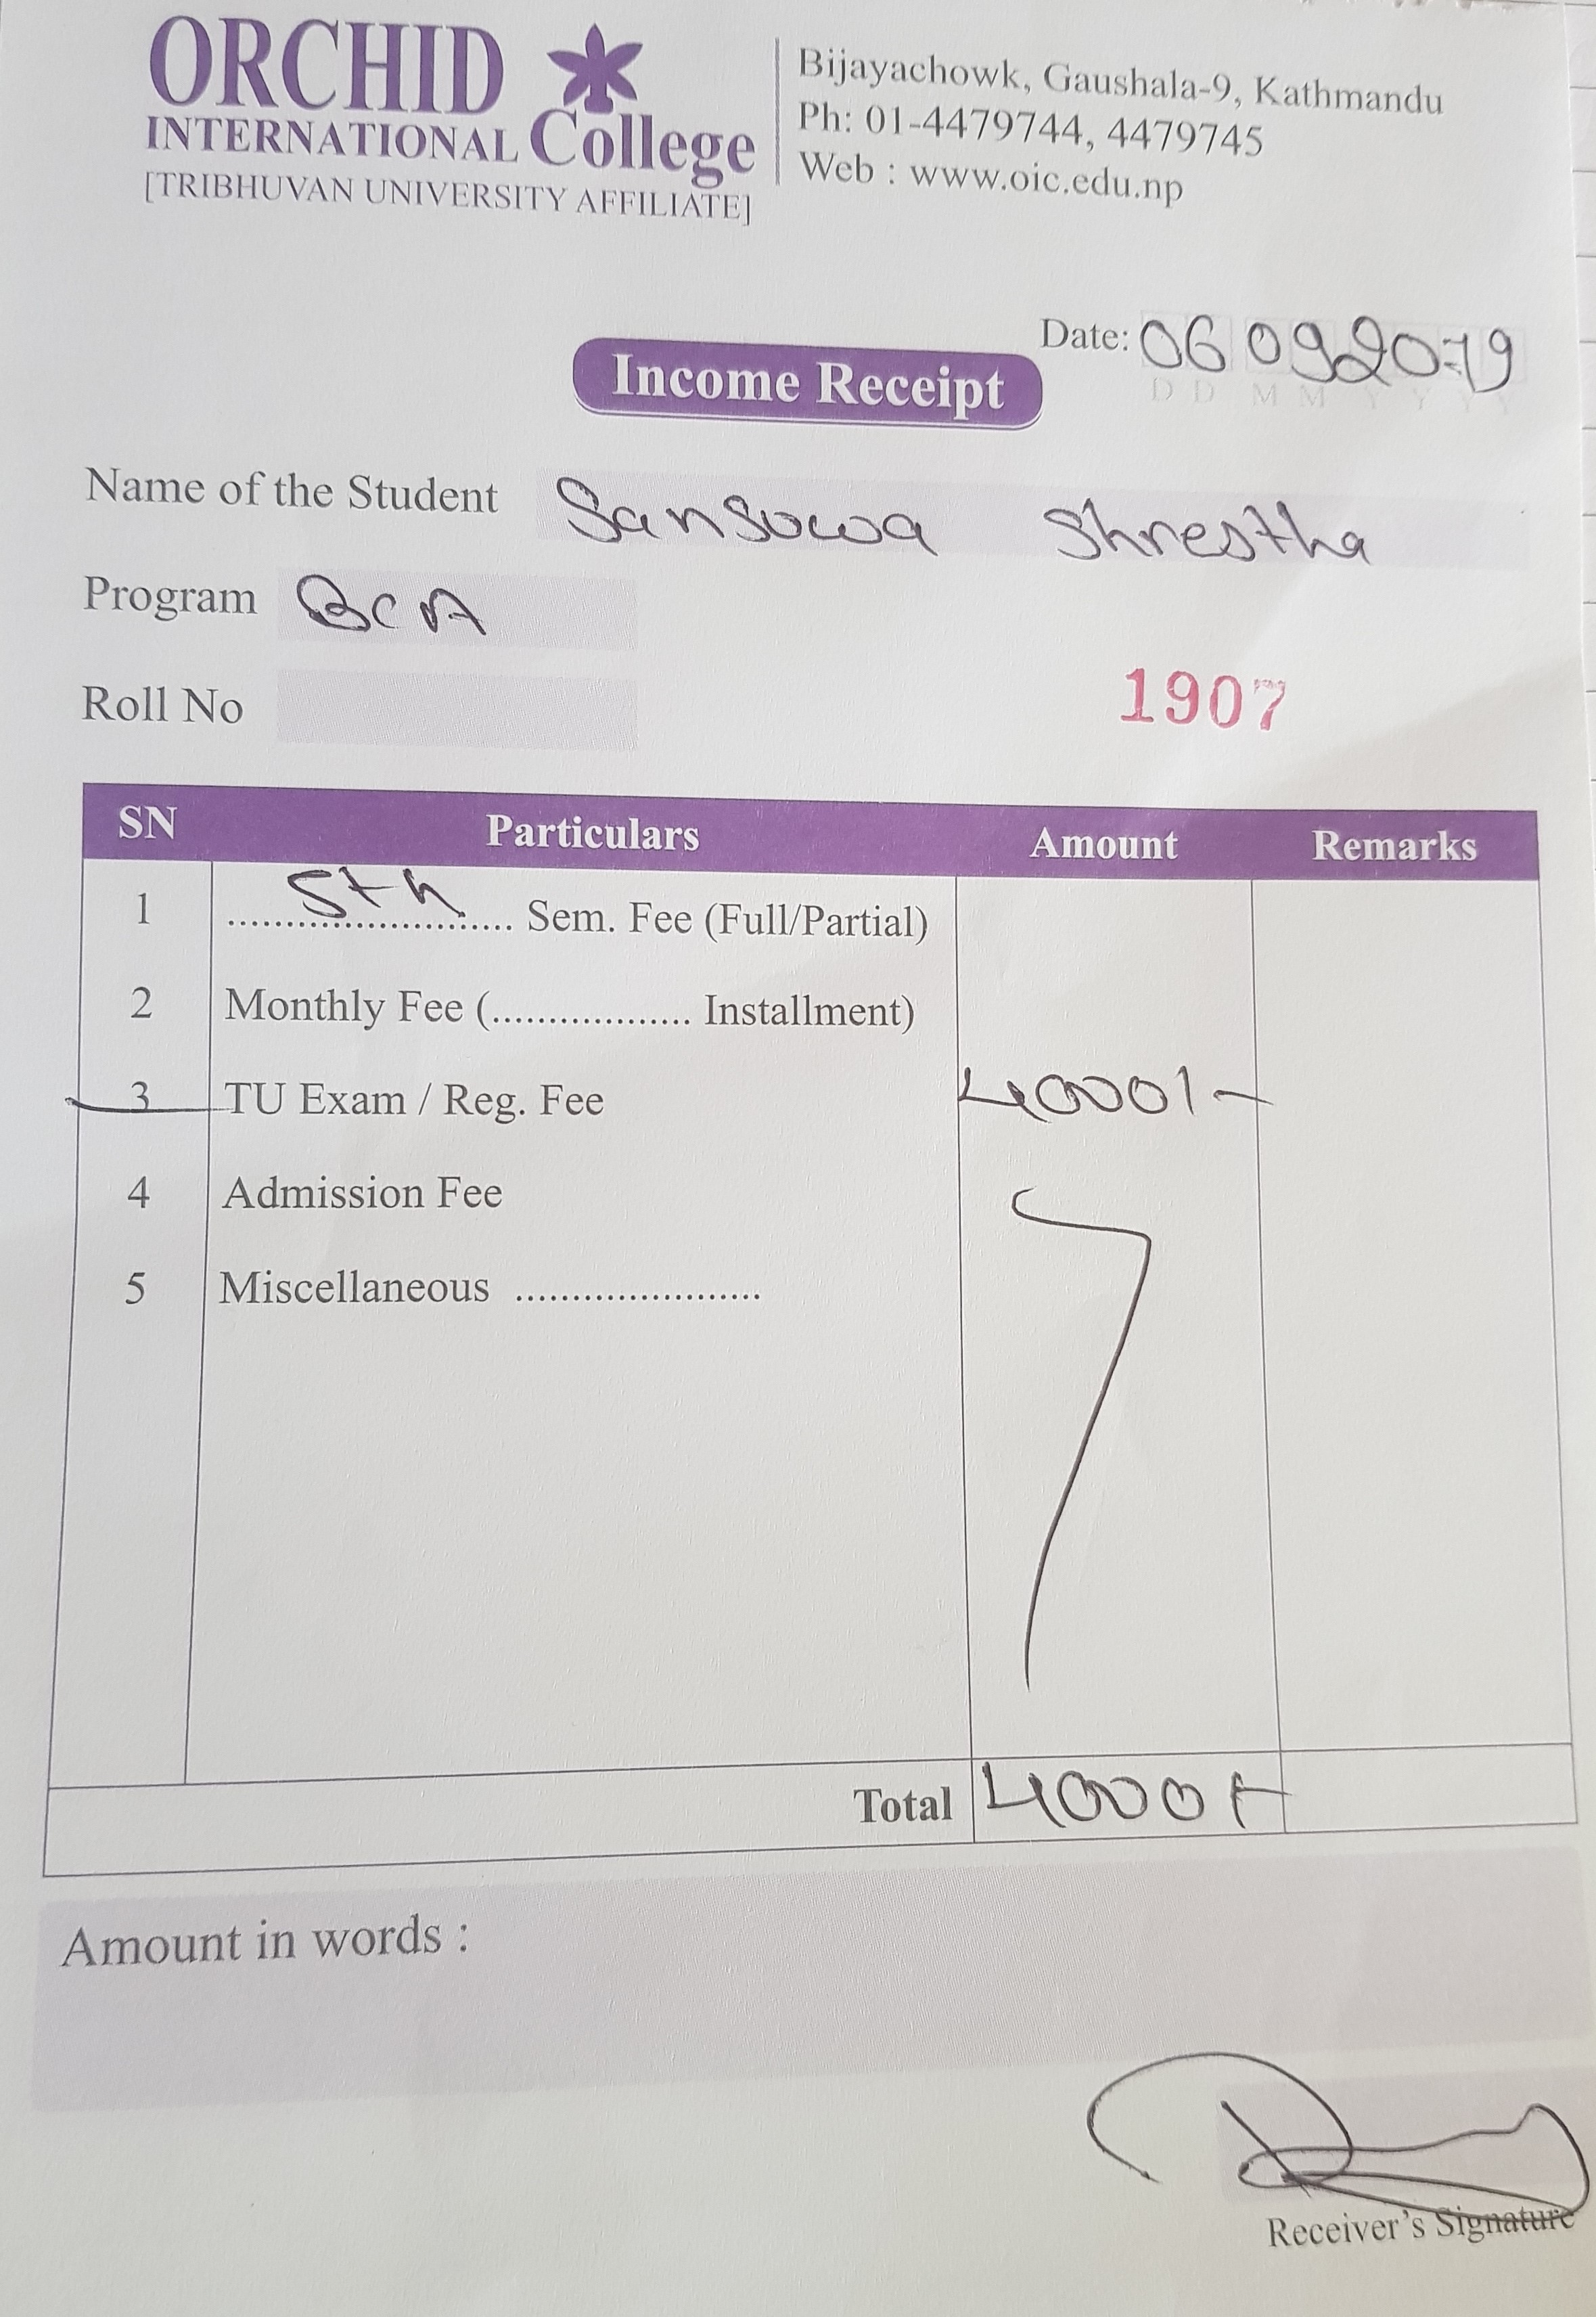 ORCHID
INTERNATIONAL College
[TRIBHUVAN UNIVERSITY AFFILIATE]
Bijayachowk, Gaushala-9, Kathmandu
Ph: 01-4479744, 4479745
Web : www.oic.edu.np
Date: 06 09 2079
D D M M Y Y Y Y
Income Receipt
Name of the Student Sansuwa Shrestha
Program BCA
Roll No
1907
SN Particulars Amount Remarks
1 5th Sem. Fee (Full/Partial)
2 Monthly Fee (.................. Installment)
3 TU Exam / Reg. Fee 4000/-
4 Admission Fee
5 Miscellaneous ......................
Total 4000/-
Amount in words :
Receiver's Signature